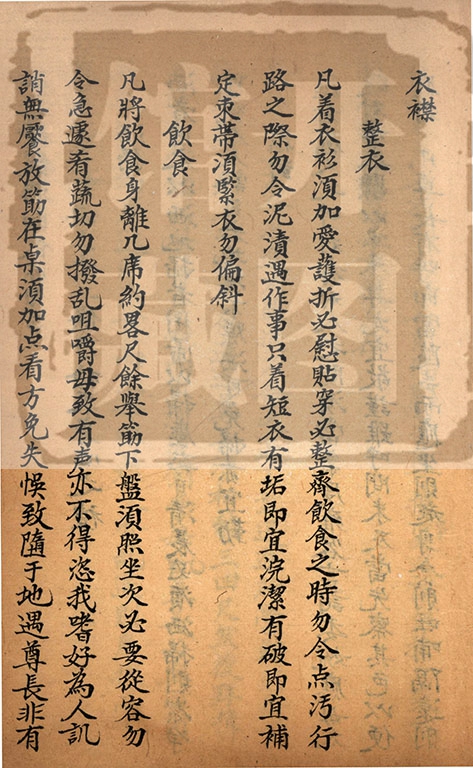 衣襟
整衣
凡着衣衫須加愛護折必慰貼穿必整齊飲食之時勿令点汚行
路之際勿令泥漬遇作事只着短衣有垢即宜浣潔有破即宜補
定束帶須緊衣勿偏斜
飲食
凡將飲食身離几席約畧尺餘舉筯下盤須照坐次必要從容勿
令急遽肴蔬切勿撥乱咀嚼毋致有声亦不得恣我嗜好為人訕
誚無饜放筯在桌須加点看方免失悞致隨于地遇尊長非有